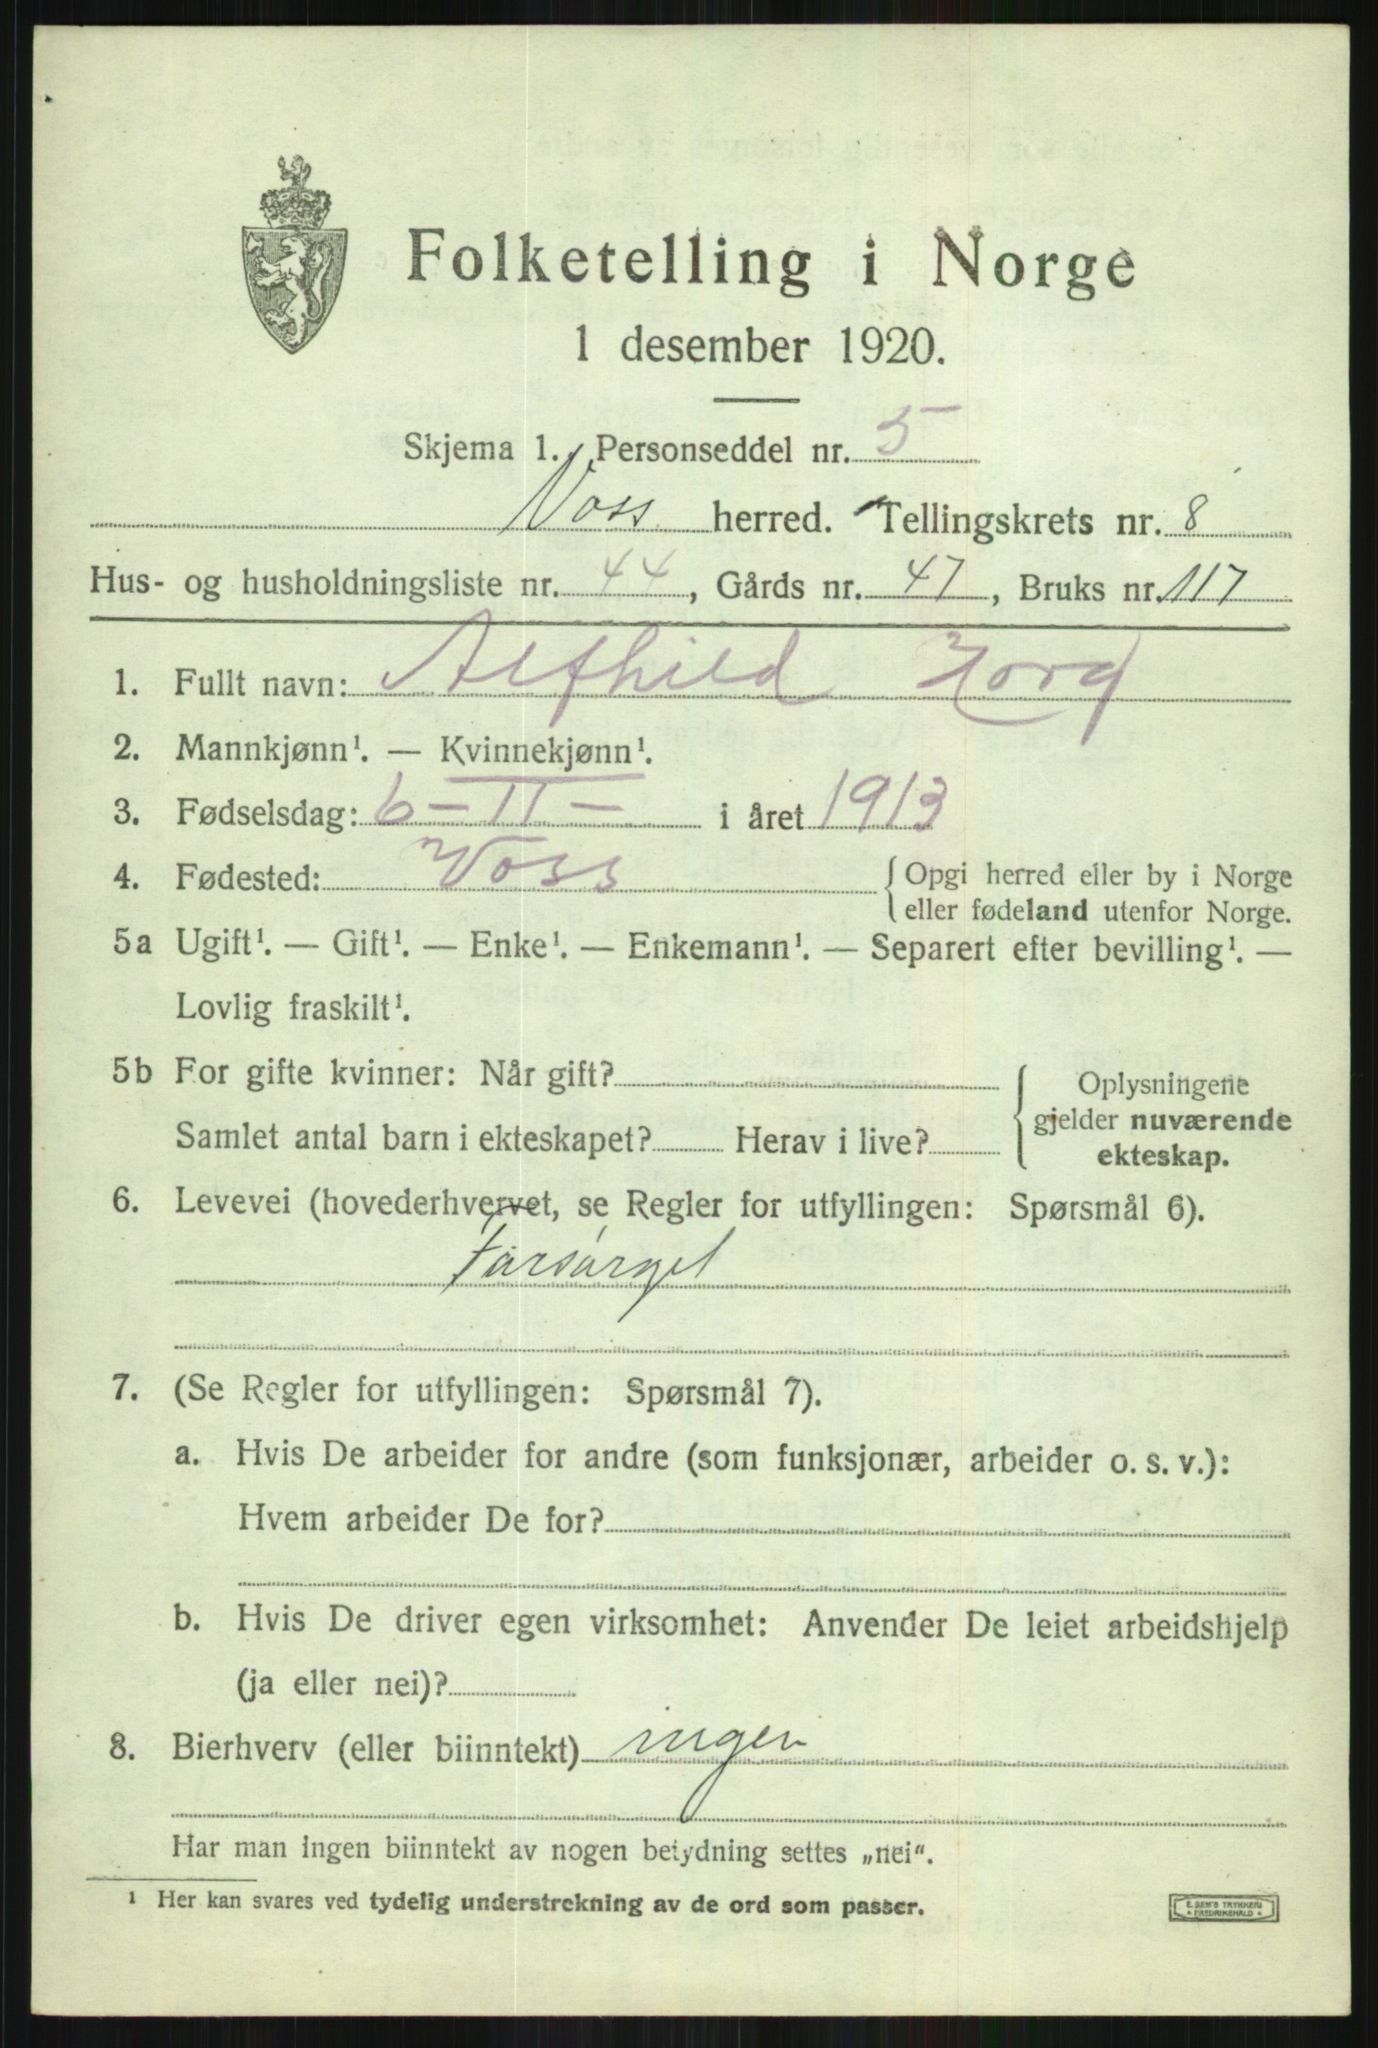 Folketelling i Norge
1 desember 1920.
Skjema 1. Personseddel nr. 5
Voss herred. Tellingskrets nr. 8
Hus- og husholdningsliste nr. 44, Gårds nr. 47, Bruks nr. 117
1. Fullt navn: Alfhild
2. Mannkjønn¹. — Kvinnekjønn¹.
3. Fødselsdag: 6-II- i året 1913
4. Fødested: Voss {Opgi herred eller by i Norge
eller fødeland utenfor Norge.
5a Ugift¹. — Gift¹. — Enke¹. — Enkemann¹. — Separert efter bevilling¹. —
Lovlig fraskilt¹.
5b For gifte kvinner: Når gift? {Oplysningene
gjelder nuværende
Samlet antal barn i ekteskapet? Herav i live?
ekteskap.
6. Levevei (hovederhvervet, se Regler for utfyllingen: Spørsmål 6).
Forsørget
7. (Se Regler for utfyllingen: Spørsmål 7).
a. Hvis De arbeider for andre (som funksjonær, arbeider o. s. v.):
Hvem arbeider De for?
b. Hvis De driver egen virksomhet: Anvender De leiet arbeidshjelp
(ja eller nei)?
8. Bierhverv (eller biinntekt) ingen
Har man ingen biinntekt av nogen betydning settes „nei“.
¹ Her kan svares ved tydelig understrekning av de ord som passer.
E. SEM'S TRYKKERI
FREDRIKSHALD